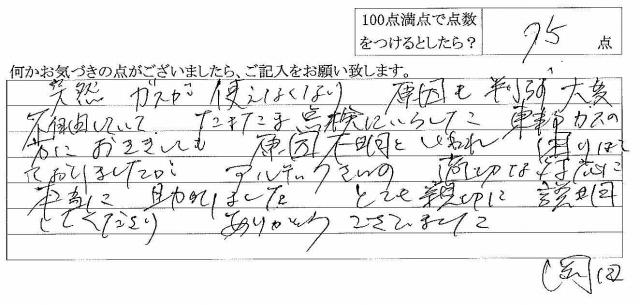 100点満点で点数
をつけるとしたら？ 75 点
何かお気づきの点がございましたら、ご記入をお願い致します。
突然 ガスが 使えなくなり 原因も 判らず 大変
不自由していて、たまたま点検にいらした 東京ガスの
方に おききしても 原因不明といわれ 困りはて
ておりましたが アルテックさんの 適切な対応に
本当に 助かりました とても 親切に 説明
してくださり ありがとうございました